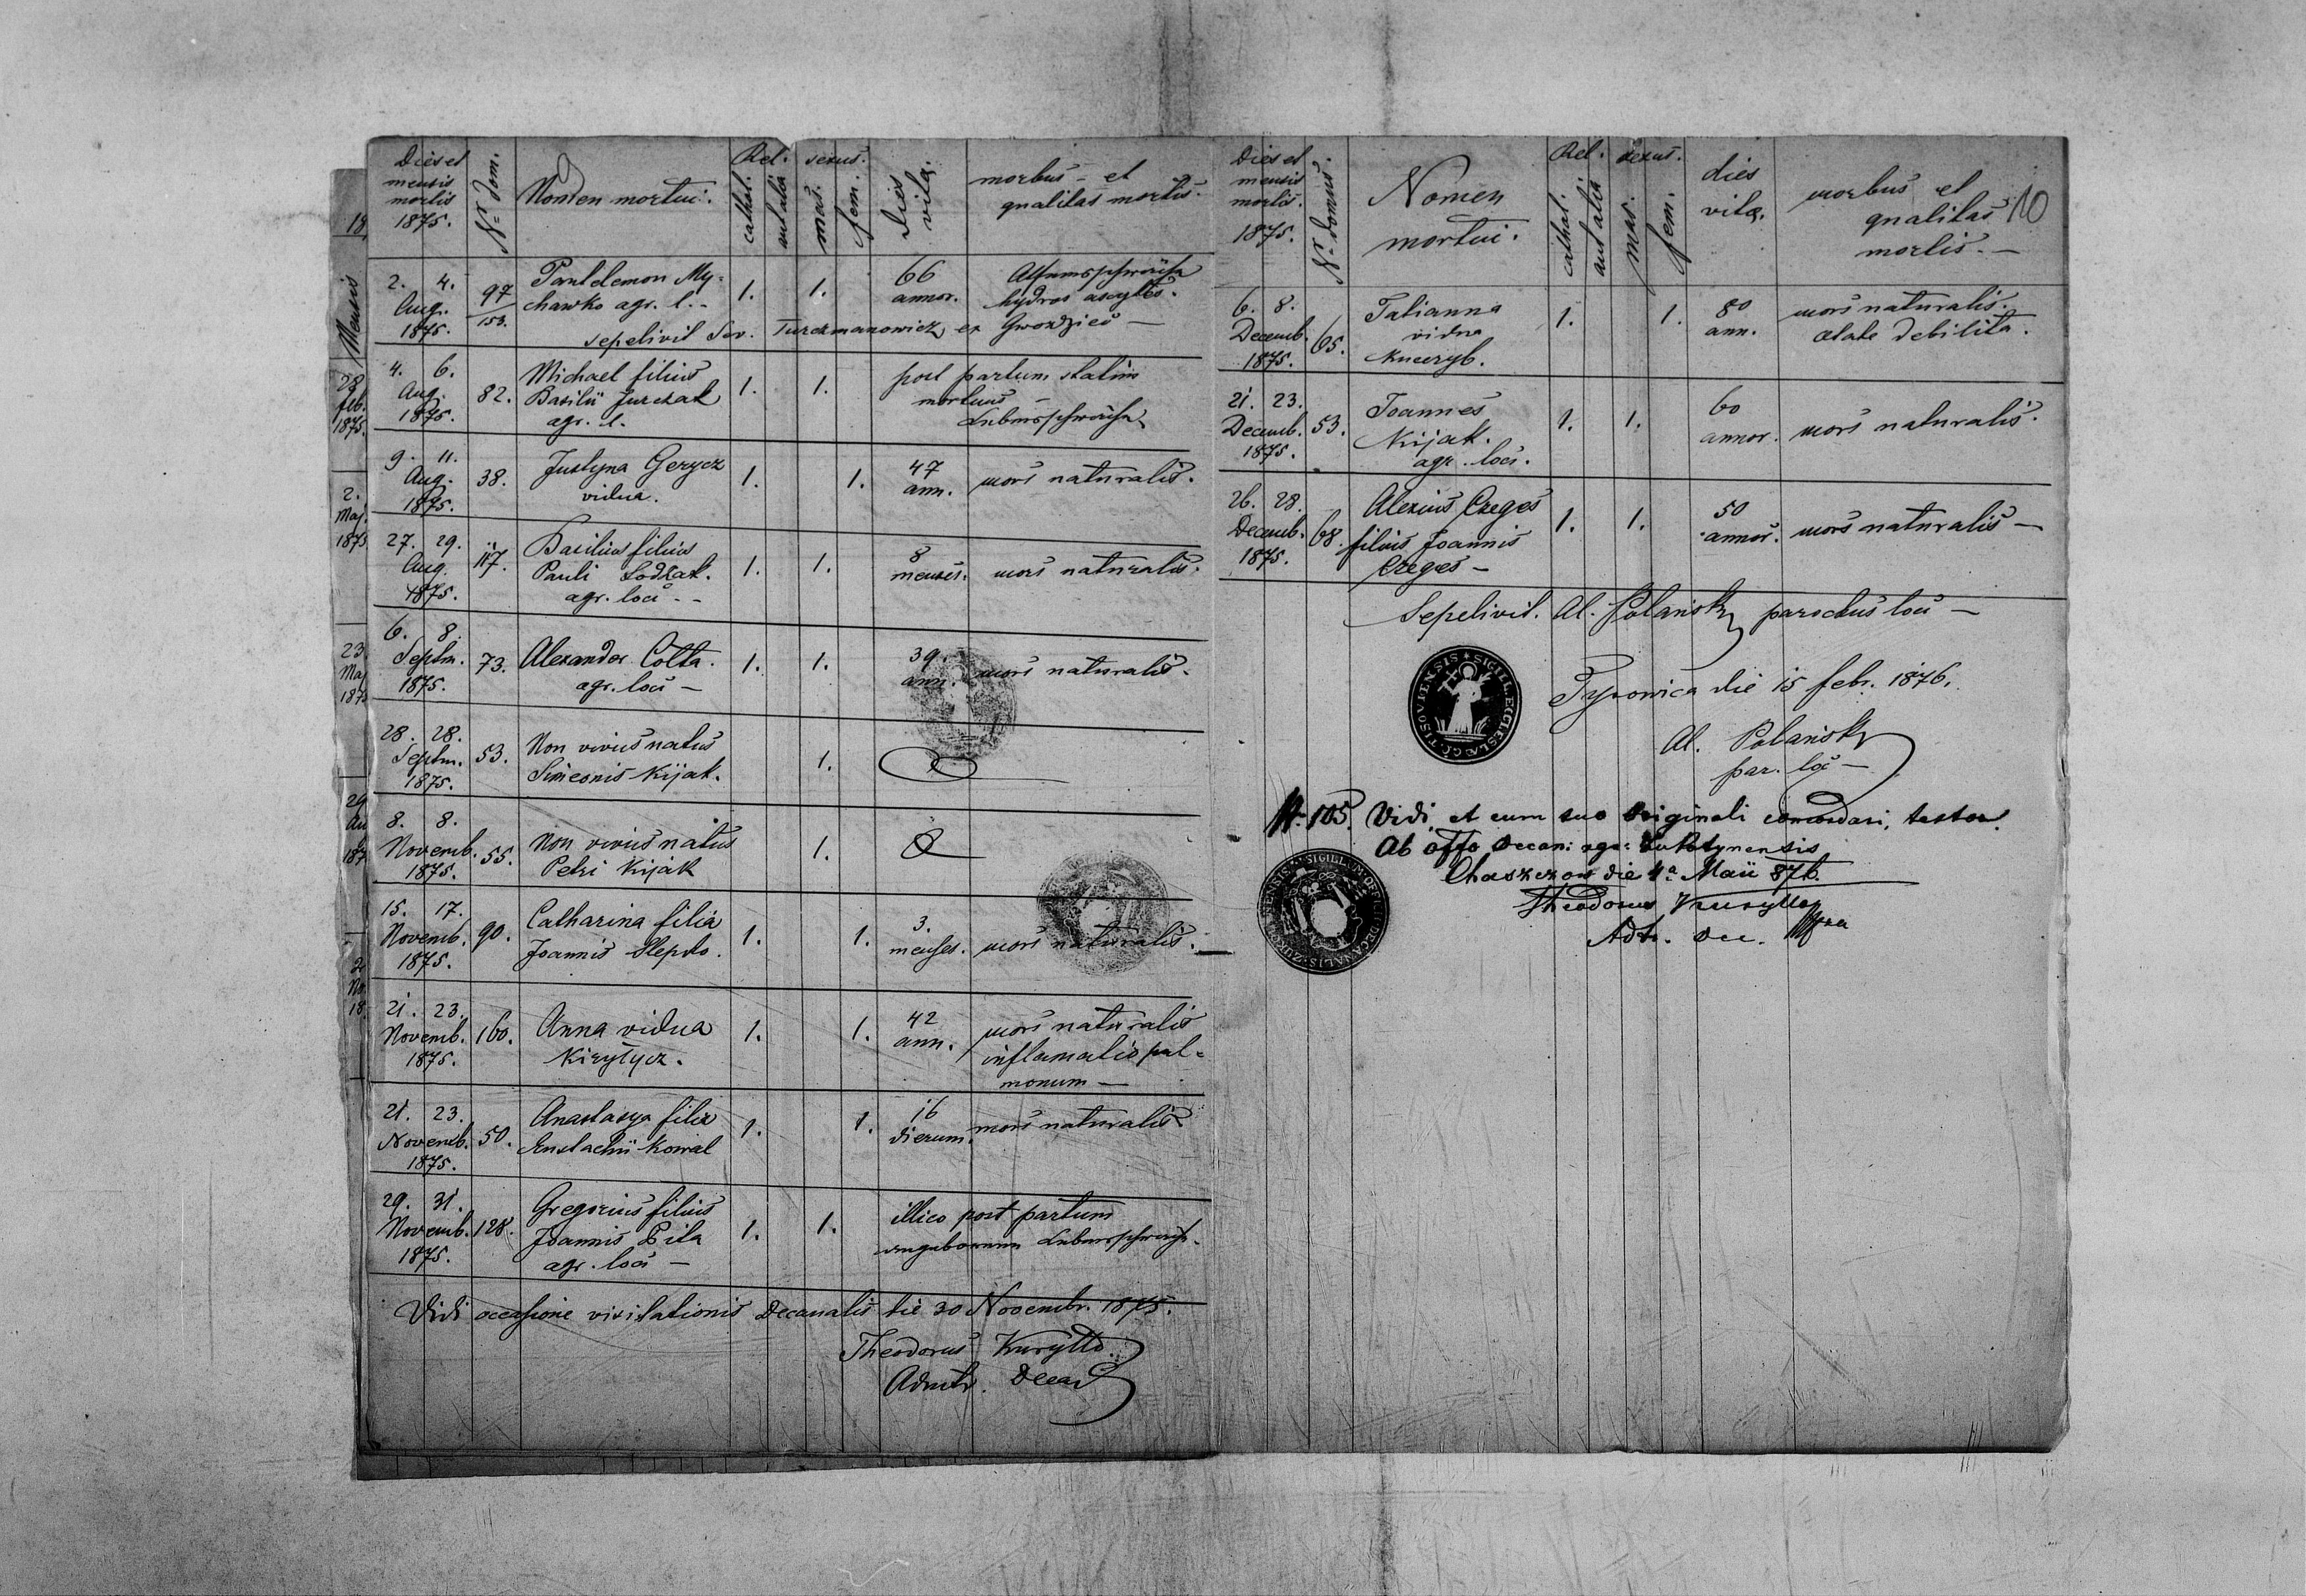 Dies et mensis mortis 1875. Nr. dom. Nomen mortui. Rel. cathol. aut alia sexus. mas. fem. dies vitæ. morbus et qualitas mortis.
2. 4. Aug. 1875. 97/153. Pantelemon My-
chawko agr. l. - 1. 1. 66 annor. hydros ascytes.
sepelivit Sev. Turczmanowicz ex Gwozdziec —
4. 6. Aug. 1875. 82. Michael filius
Basilii Jurczak
agr. l. 1. 1. post partum statim
mortuus -
9. 11. Aug. 1875. 38. Justyna Gerycz
vidua. 1. 1. 47 ann. mors naturalis.
27. 29. Aug. 1875. 117. Basilius filius
Pauli
agr. loci - - 1. 1. 8 menses. mors naturalis.
6. 8. Septm. 1875. 73. Alexander Colta.
agr. loci — 1. 1. 39. ann. mors naturalis.
28. 28. Septm. 1875. 53. Non vivus natus
Simeonis Kijak. 1.
8. 8. Novemb. 1875. 55. Non vivus natus
Petri Kijak 1.
15. 17. Novemb. 1875. 90. Catharina filia
Joannis 1. 1. 3. menses. mors naturalis.
21. 23. Novemb. 1875. 160. Anna vidua
Kirytycz. 1. 1. 42 ann. mors naturalis
inflamatio pul-
monum —
21. 23. Novemb. 1875. 50. Anastasya filia
Eustachii Kowal 1. 1. 16 dierum. mors naturalis
29. 31. Novemb. 1875. 128. Gregorius filius
Joannis Pila
agr. loci — 1. 1. illico post partum
Vidi occasione visitationis Decanalis die 30 Novembr. 1875.
Theodorus Kuryłło.
Admtr. Decan
18
Mensis
28 feb. 1875.
2. Maj. 1875
23. Maj 1875
29
Dies et mensis mortis. 1875. Nr. domus. Nomen mortui. Rel. cathol. aut alia sexus. mas. fem. dies vitæ. morbus et qualitas mortis. —
10
6. 8. Decemb. 1875. 65. Tatianna
vidua
Kuceryb. 1. 1. 80 ann. mors naturalis.
ætate debilita.
21. 23. Decemb. 1875. 53. Joannes
Kijak.
agr. loci. 1. 1. 60 annor. mors naturalis.
26. 28. Decemb. 1875. 68. Alexius Czeges
filius Joannis
Czeges — 1. 1. 50 annor. mors naturalis —
Sepelivit. Al. Polański parochus loci —
Tysowica die 15 febr. 1876.
Al. Polański
par. loci —
SIGILL. ECCLESIÆ
Nr. 105. Vidi et cum suo originali concordari, testor.
Ab offo Decan:
die 4a Maii 876.
Theodorus Kuryłło
Adtr. Dec.